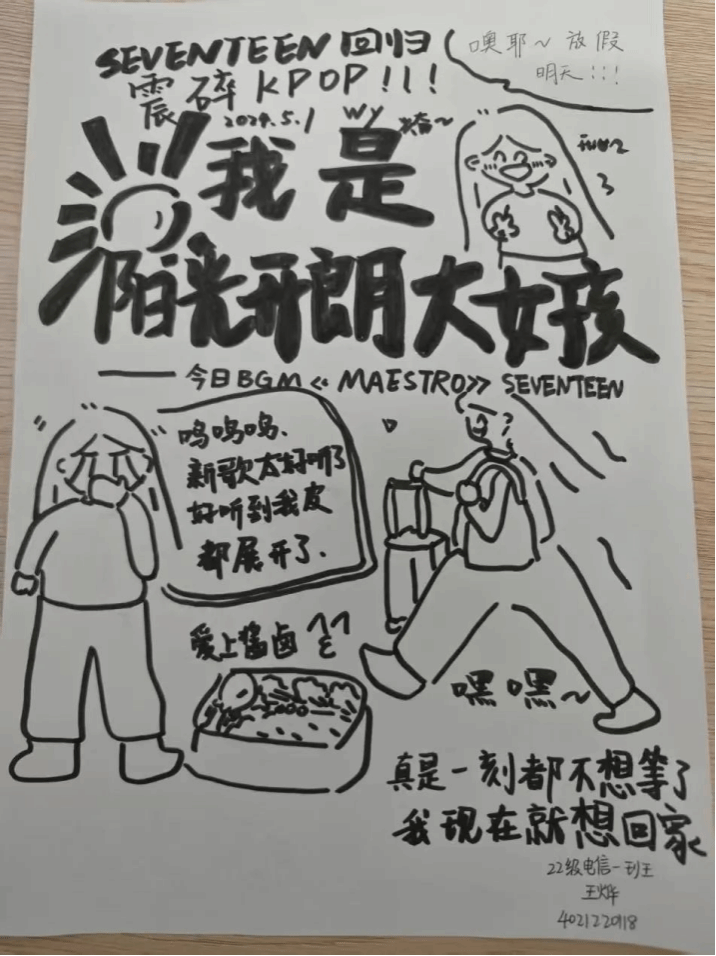 SEVENTEEN 回归
震碎 KPOP!!!
噢耶~ 放假
明天!!!
2024.5.1
wy
我是
阳光开朗大女孩
—— 今日BGM 《MAESTRO》 SEVENTEEN
呜呜呜、
新歌太好听了
好听到我皮
都展开了.
爱上酱卤
嘿嘿~
真是一刻都不想等了
我现在就想回家
22级电信一班王
王烨
4021220118